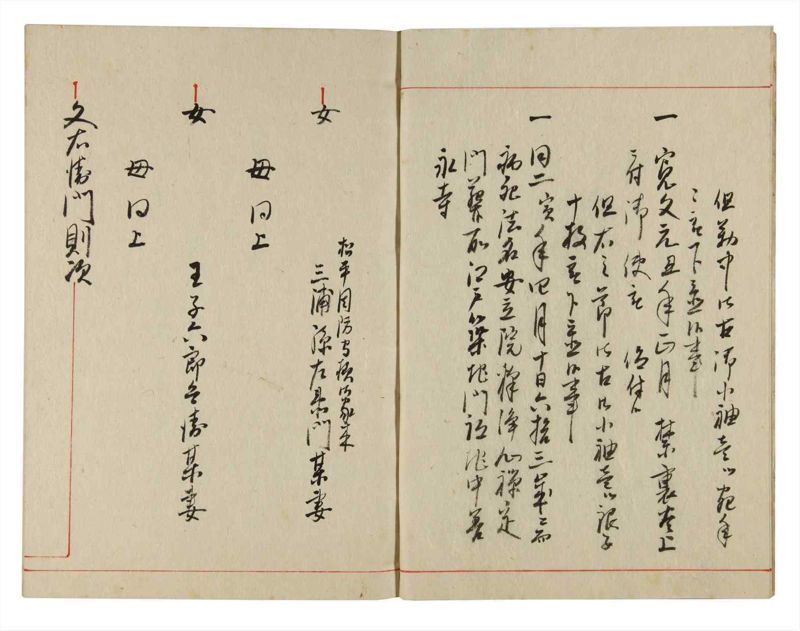 但勤中御召御小袖壱ツ宛年
々被下置候事
一 寛文元丑年正月 禁裏炎上
ニ付御使被 仰付候
但右之節御召御小袖壱ツ銀子
十枚被下置候事
一 同二寅年四月十日六拾三歳ニ而
病死法名安立院釋浄心禅定
門葬所江戸築地門跡地中善
永寺
女
松平周防守様御家来
三浦源左衛門某妻
母同上
女
王子六郎兵衛某妻
母同上
文右衛門則次